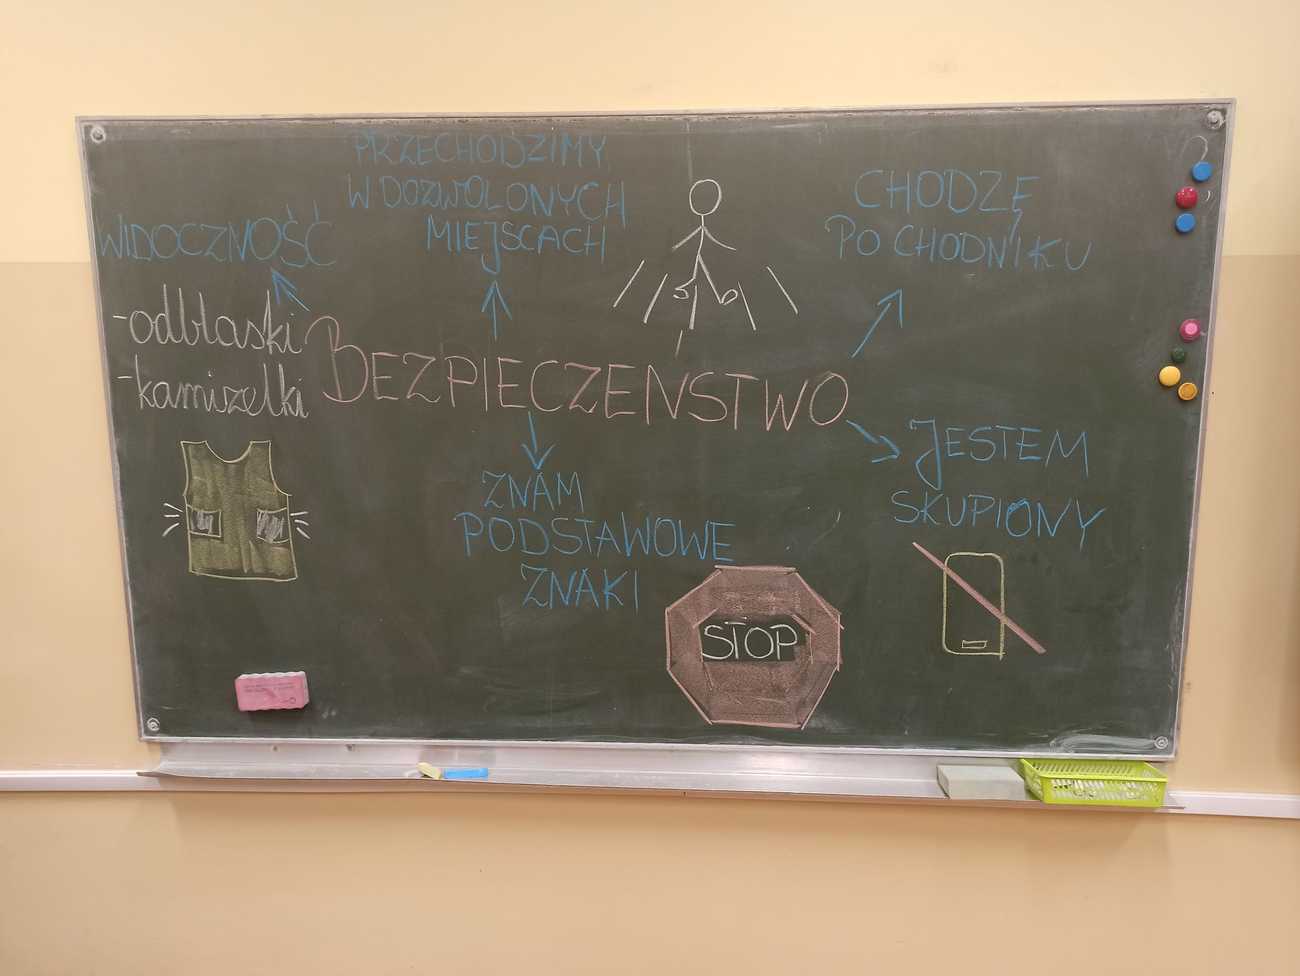 PRZECHODZIMY
W DOZWOLONYCH
MIEJSCACH
WIDOCZNOŚĆ
-odblaski
-kamizelki
CHODZĘ
PO CHODNIKU
BEZPIECZENSTWO
ZNAM
PODSTAWOWE
ZNAKI
STOP
JESTEM
SKUPIONY